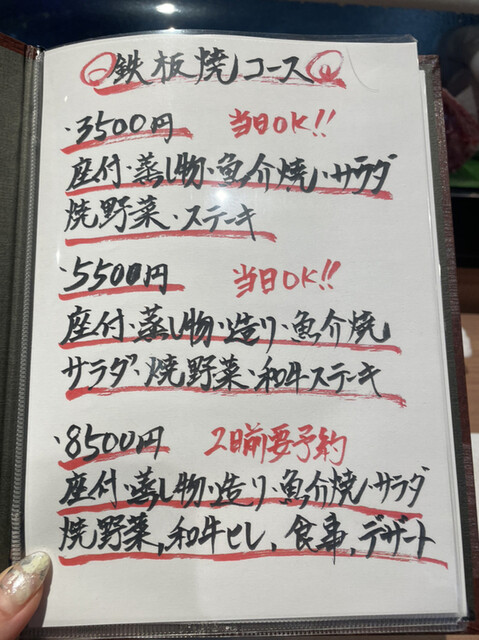 鉄板焼コース
・3500円 当日OK!!
座付・蒸し物・魚介焼・サラダ
焼野菜・ステーキ
・5500円 当日OK!!
座付・蒸し物・造り・魚介焼
サラダ・焼野菜・和牛ステーキ
・8500円 2日前要予約
座付・蒸し物・造り・魚介焼・サラダ
焼野菜,和牛ヒレ,食事,デザート